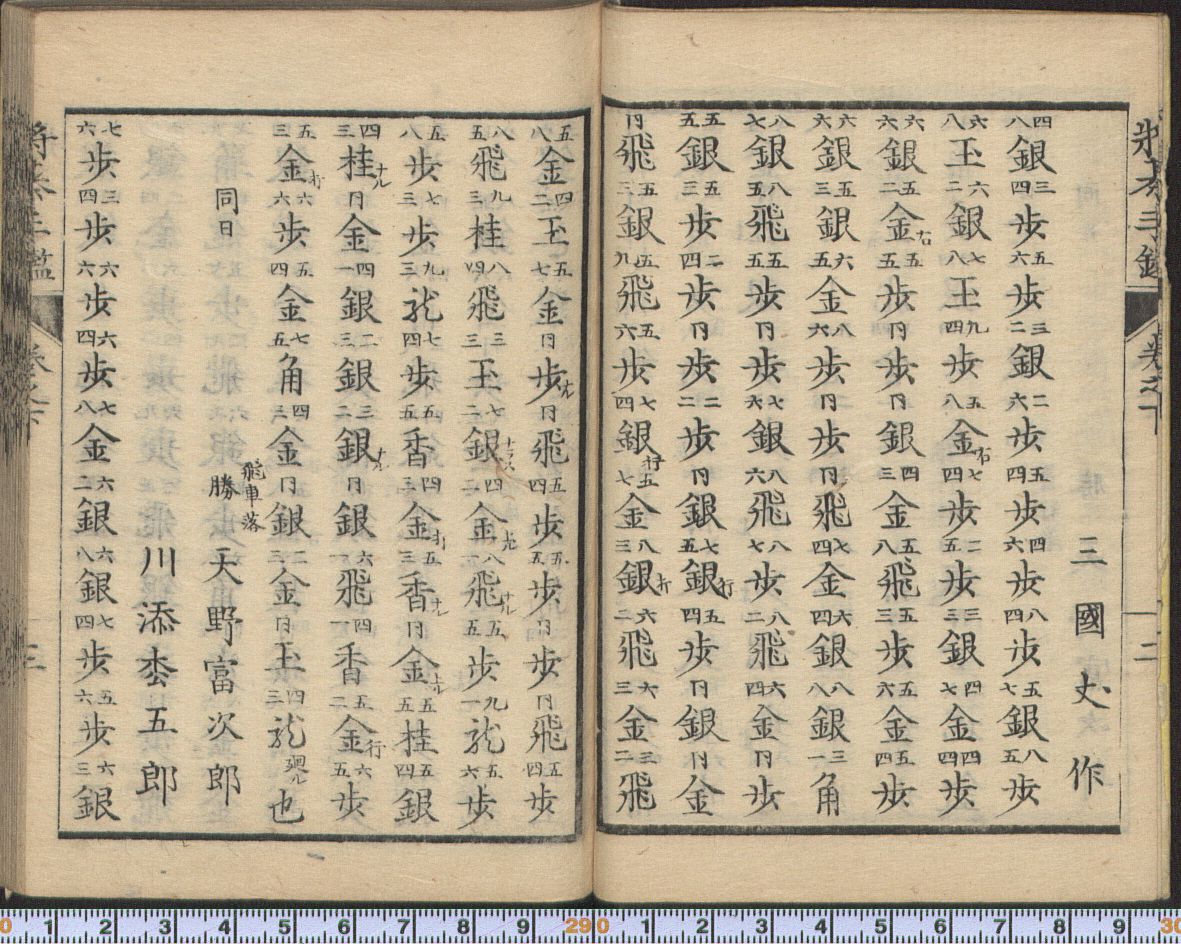 將棊手鑑 卷之下 二
三國𠀋作
四八銀三四歩五六歩三二銀二六歩五四歩四六歩八四歩五七銀八五歩
六八玉六二銀七八玉九四歩五八金右七四歩二五歩三三銀四七金四四歩
六六銀五二金右五五歩同歩同銀四三金五八飛五三歩五六金五四歩
六六銀五三銀六五金八六歩同歩同飛七四金六四銀八八銀三一角
八七銀八五飛五五歩同歩七六銀八六飛八七歩八二飛六四金同歩
五五銀五三歩二四歩同歩二二歩同銀七五銀打五四歩同銀同金
同飛五三銀五九飛五六歩七四銀打五七金八三銀打六二飛六三金三二飛
五八金四二玉五七金同歩ナル同飛五四歩五五歩同歩同飛五四歩
八五飛九三桂八四飛三三玉七二銀ナラス四二金上八一飛ナル五五歩九一龍五六歩
五八歩七三歩九三龍七四歩五五香四三金打五三香ナル同金上五五桂五四銀
四三桂ナル同金四一銀二三銀三二銀ナル同銀六一飛四一香五二金行六五歩
五三金打六六歩五四金七五角四三金同銀二三金同玉四三龍廻ル也
同日 飛車落 勝 天野富次郎
川添枩五郎
七六歩三四歩六六歩六四歩七八金六二銀六八銀七四歩五六歩六三銀
將棊手鑑 卷之下 三